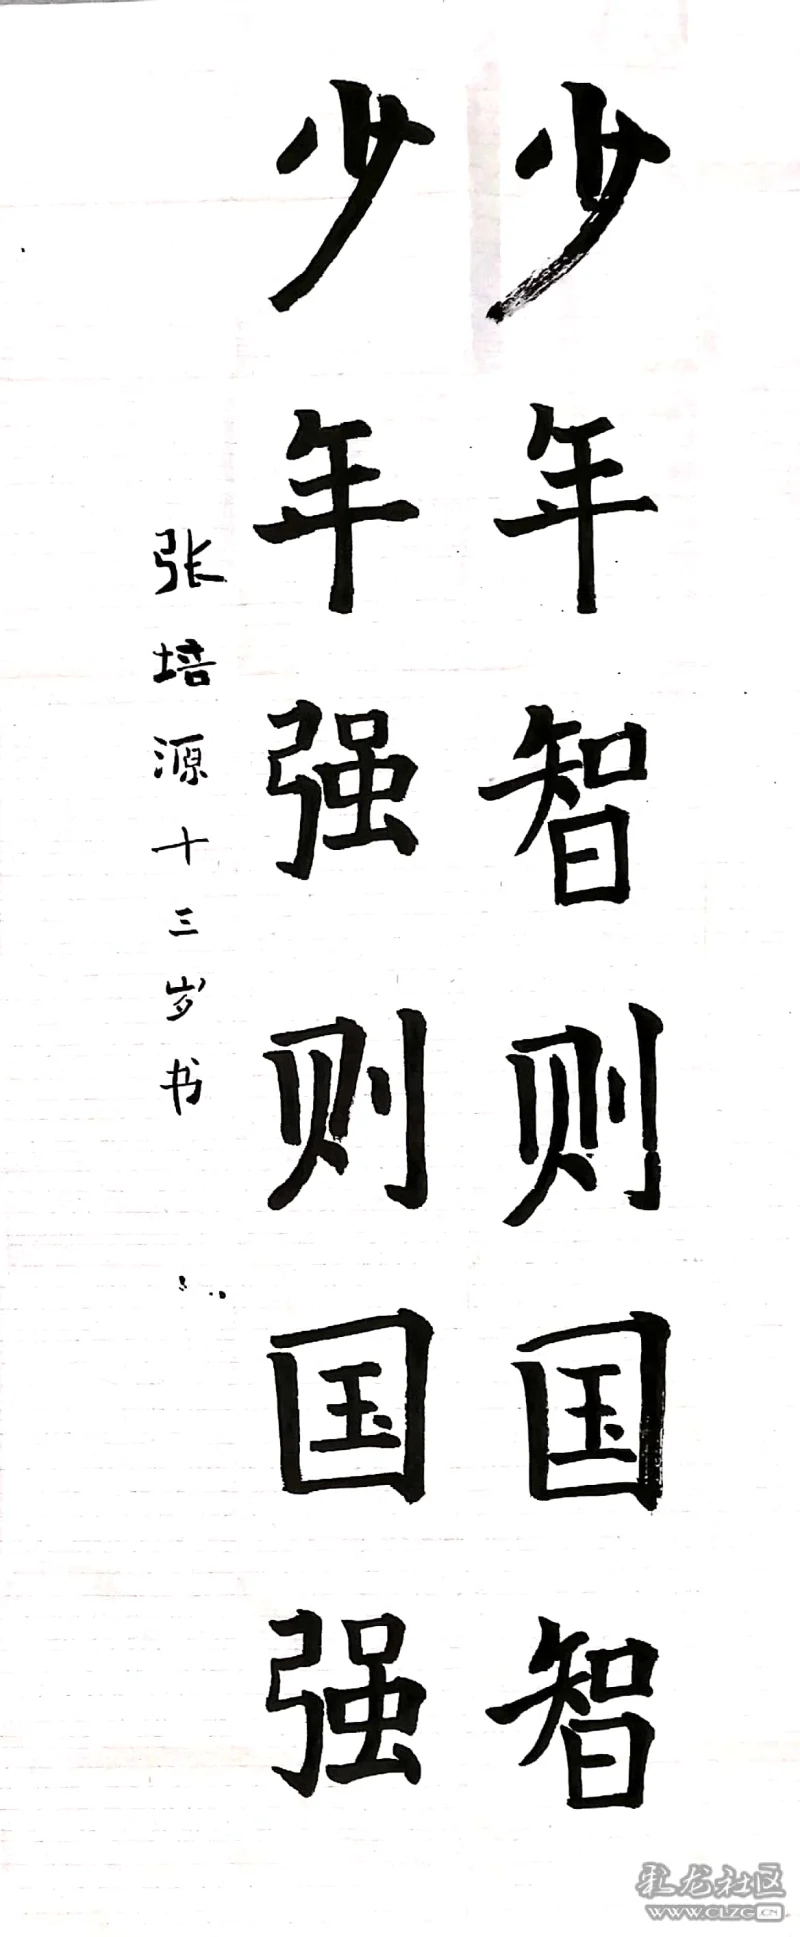 少年智则国智
少年强则国强
张培源十三岁书
彩龙社区
www.CLZG.CN